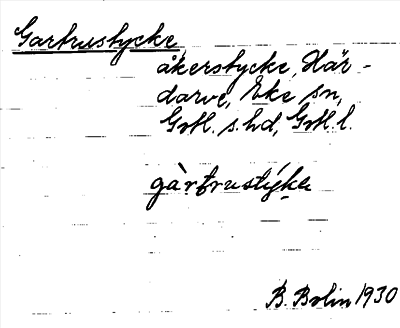 Gartrustycke
åkerstycke, Här-
darve, Eke sn,
Gotl. s. hd, Gotl. l.
gàrtrustýka
B. Bolin 1930